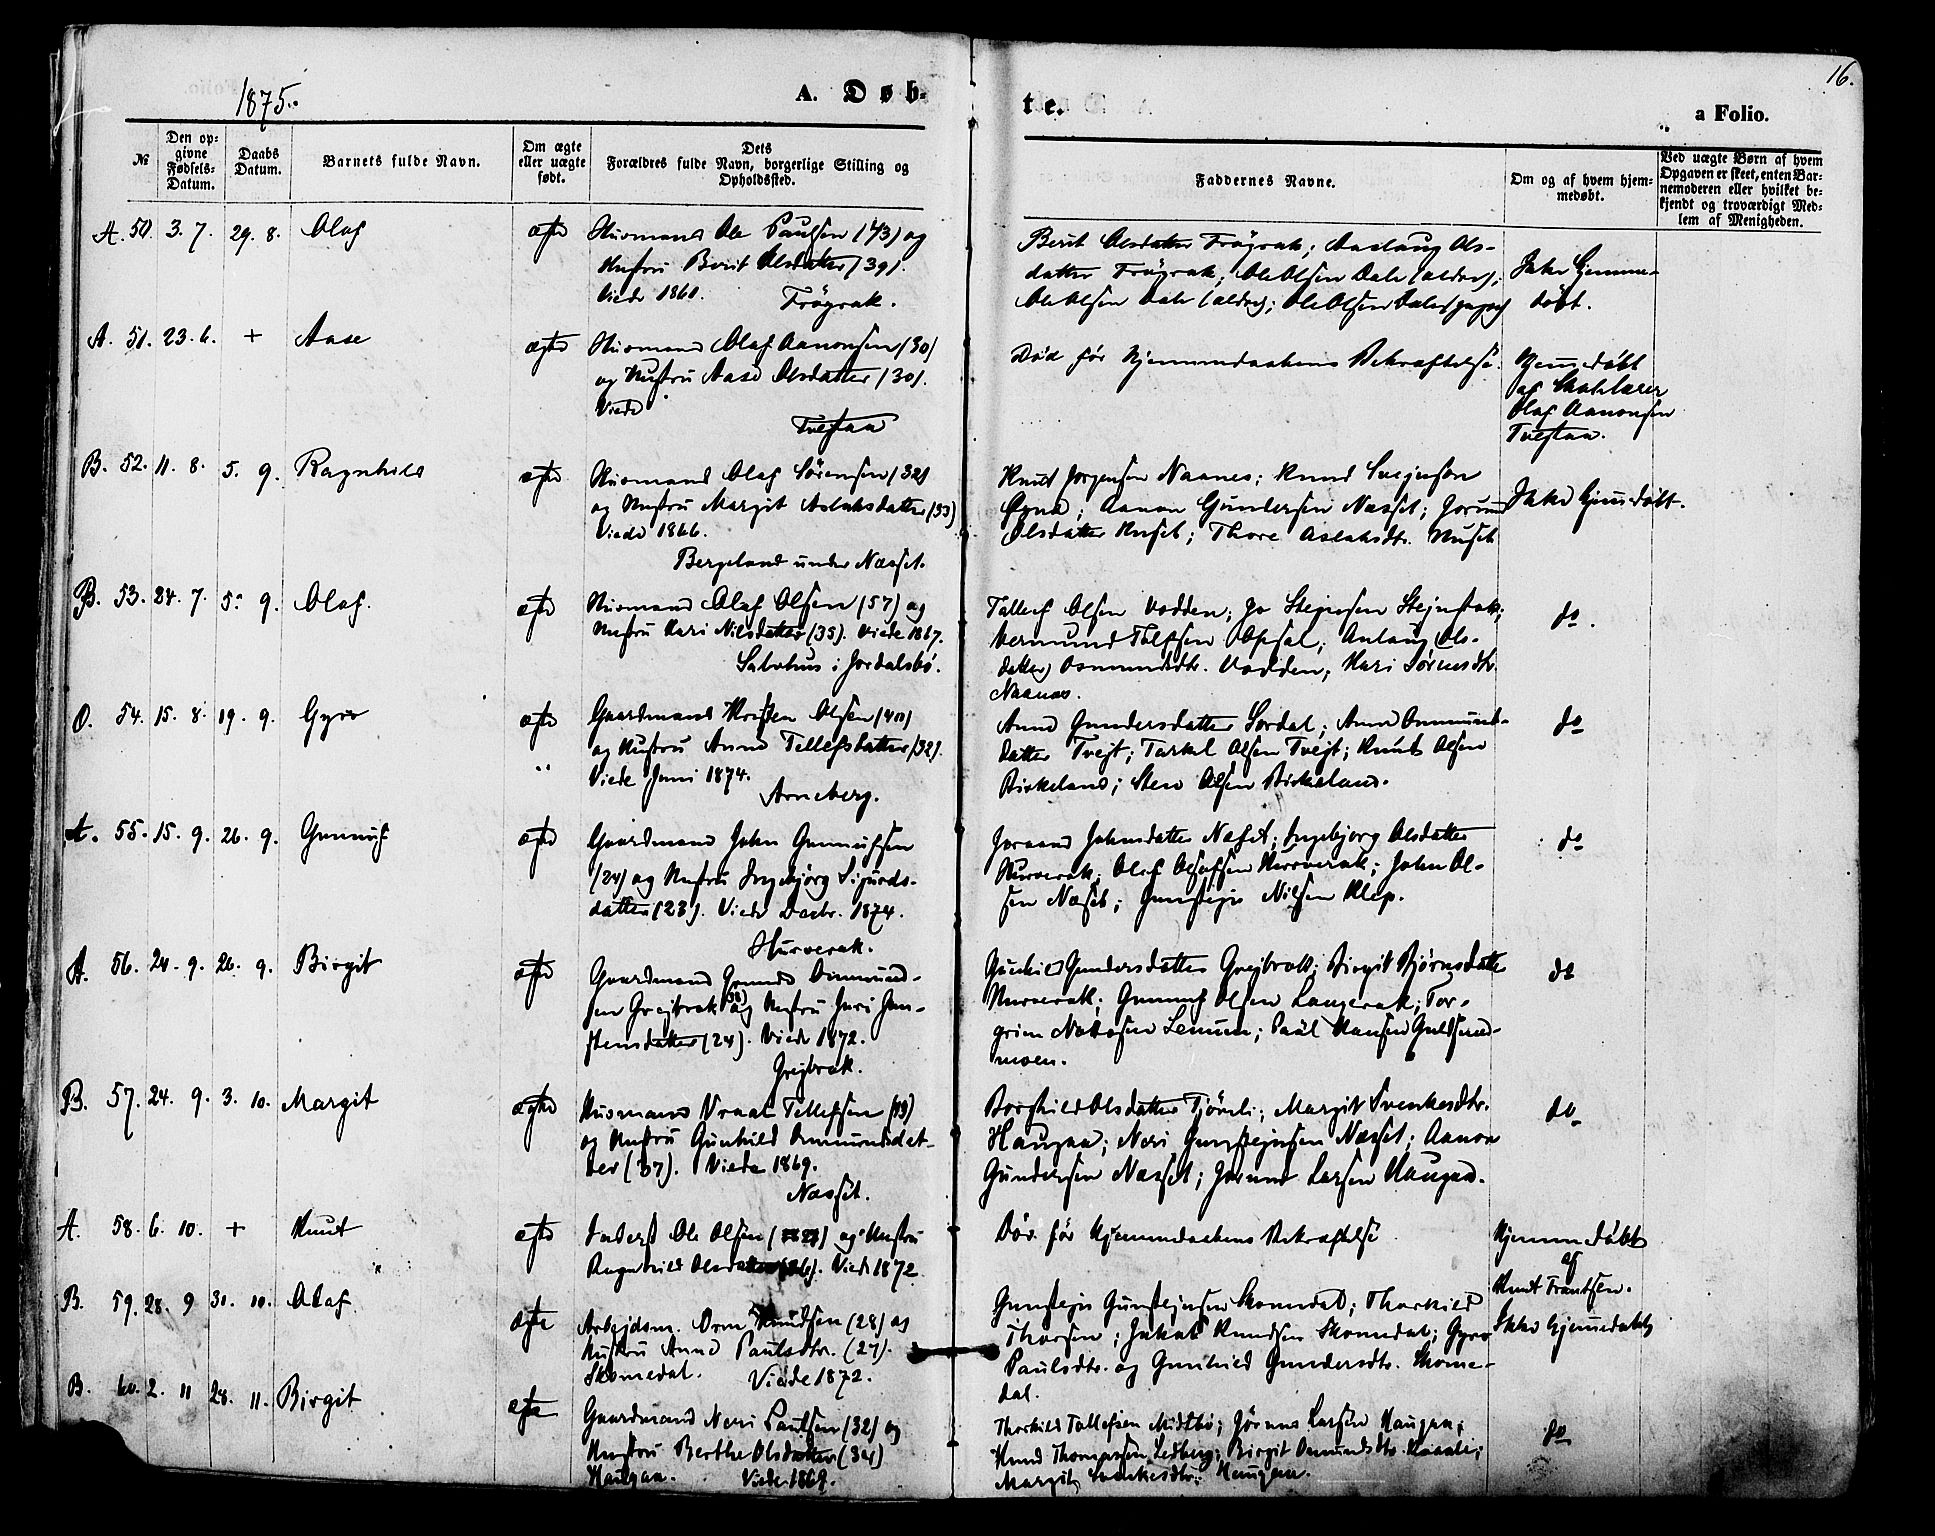 1875.
A. Døb-
te.
a Folio.
16.
№
Den op-
givne
Fødsels-
Datum.
Daabs
Datum.
Barnets fulde Navn.
Om ægte
eller uægte
født.
Dets
Forældres fulde Navn, borgerlige Stilling og
Opholdssted.
Faddernes Navne.
Om og af hvem hjem-
medøbt.
Ved uægte Børn af hvem
Opgaven er skeet, enten Bar-
nemoderen eller hvilket be-
kjendt og troværdigt Med-
lem af Menigheden.
A. 50. 3. 7. 29. 8. Olaf
ægte
Husmand Ole Paulsen (43) og
Hustru Berit Olsdatter (39).
Viede 1860.
Frøyrak.
Berit Olsdatter Frøyrak; Aaslaug Ols-
datter Frøyrak; Ole Olsen Dale (ældre);
Ole Olsen Dale (ældre); Ole Olsen Dale
Ikke hjemme-
døbt.
A. 51. 23. 6. + Aase
ægte
Husmand Olaf Aanonsen (30)
og Hustru Aase Olsdatter (30).
Viede
Tvejtaa
Død før Hjemmedaabens Bekræftelse.
Hjemmedøbt
af Skolelærer
Olaf Aanonsen
Tvejtaa.
B. 52. 11. 8. 5. 9. Ragnhild
ægte
Husmand Olaf Sørensen (32)
og Hustru Margit Aslaksdatter (33)
Viede 1866.
Bergeland under Næsset.
Knut Jørgensen Naanes; Knud Svejnson
Aanon Gundersen Næsset; Jorund
Olsdatter Huset; Thore Aslaksdtr. Huset
Ikke hjemmedøbt.
B. 53. 24. 7. 5. 9. Olaf.
ægte
Husmand Olaf Olsen (57) og
Hustru Kari Nilsdatter (35). Viede 1867.
Salvhus i Jordalsbø.
Tallef Olsen Vodden; Jo
Vermund Opsal; Aslaug Ols-
datter Osmundsdtr. Vodden; Kari Sørensdtr.
Naanes.
do.
O. 54. 15. 8. 19. 9. Gyro
ægte
Gaardmand Kristen Olsen (40)
og Hustru Anne Tellefsdatter (32).
Viede Juni 1874.
Arneberg.
Anne Gundersdatter Sordal; Anne Omund-
datter Tvejt; Tarkel Olsen Tvejt; Knut Olsen
Birkeland; Sten Olsen Birkeland.
do
A. 55. 15. 9. 26. 9. Gunnuf
ægte
Gaardmand John Gunnufsen
(24) og Hustru Ingebjørg Sigurds-
datter (23). Viede Decbr. 1874.
Hurverak.
Joraand Johnsdatter Næset; Ingebjorg Olsdatter
Hurverak; Olef Olafsen Hurverak; John Ol-
sen Næset; Gunstejn Nilsen Klep.
do
A. 56. 24. 9. 26. 9. Birgit
ægte
Gaardmand Gunnd Ommund-
sen Grejbrak (38) og Hustru Guri Gun-
stensdatter (24). Viede 1872.
Grejbrak.
Gunhild Gundersdatter Grejbrak; Birgit Bjørnsdatter
Hurverak; Gunnuf Olsen Langerak; Tor-
grim Lunden; Paul Hansen Guldsmed-
moen.
do
B. 57. 24. 9. 3. 10. Margit
ægte
Husmand Vraal Tellefsen
og Hustru Gunhild Ommundsdat-
ter (37). Viede 1869.
Næsset.
Borghild Olsdatter Tjømli; Margit Svenkesdtr.
Haugaa; Neri Gunstejnsen Næsset; Aanon
Gundersen Næsset; Jorund Larsen Haugaa.
do
A. 58. 6. 10. + Knut
ægte
Inderst Ole Olsen og Hustru
Ragnhild Olsdatter. Viede 1872
Død før Hjemmedaabens Bekræftelse
Hjemmedøbt
af
Knut Frantsen.
B. 59. 28. 9 31. 10. Olaf.
ægte
Arbejdsm. Orm Knudsen (28) og
Hustru Anne Paulsdtr. (27).
Skomedal. Viede 1872.
Gunstejn Gunstejnsen Skomedal; Thorkild
Thorsen; Jakob Knudsen Skomedal; Gyro
Paulsdtr. og Gunhild Gundersdtr. Skome-
dal.
Ikke hjemmedøbt
B. 60. 2. 11 28. 11. Birgit
ægte
Gaardmand Neri Paulsen (32) og
Hustru Berthe Olsdatter (34)
Haugaa. Viede 1869.
Thorkild Tallefsen Midtbø; Jørund Larsen Haugaa;
Knud Thompssen Ledberg; Birgit Omundsdtr.
Margit Svenkesdtr. Haugaa.
do